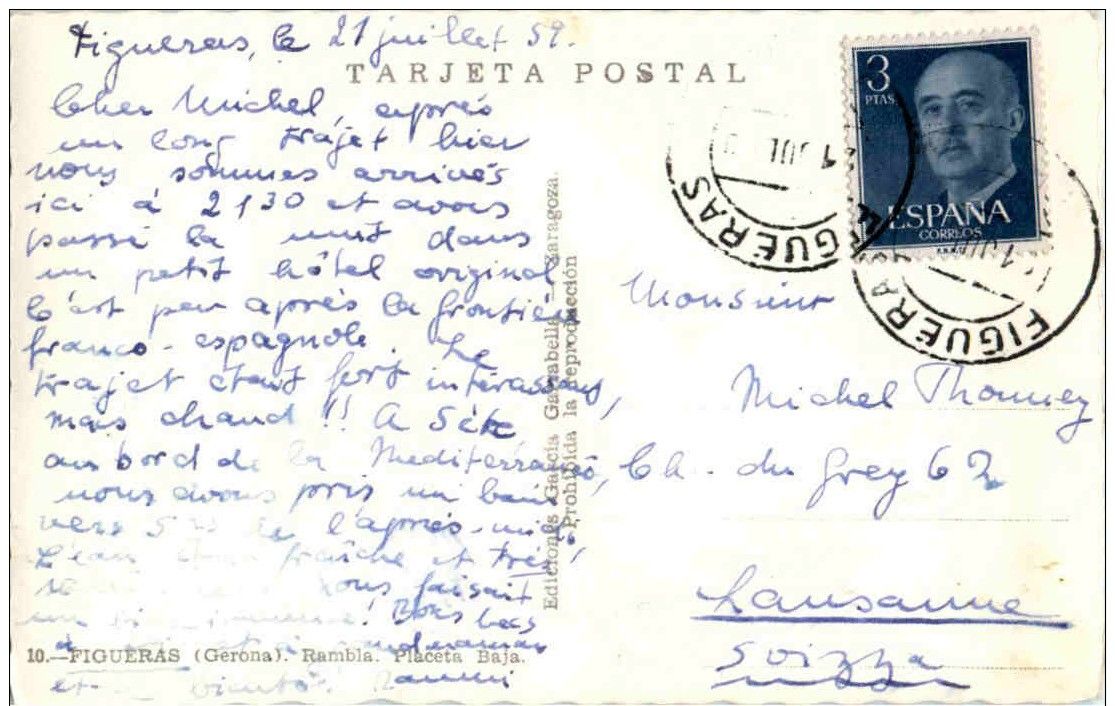 Figueras, le 21 juillet 59.
TARJETA POSTAL
Cher Michel, après
un long trajet hier
nous sommes arrivés
ici à 2130 et avons
passé la nuit dans
un petit hôtel original
C'est peu après la frontière
franco-espagnole. Le
trajet était fort intéressant,
mais chaud!! A Sète
au bord de la Mediterranée,
nous avons pris un bain
vers 5 de l'après-midi.
L'eau fraîche et très
nous faisait
un ! Bons becs
à
10.—FIGUERAS (Gerona). Rambla. Placeta Baja.
et
Ediciones García Garrabella - Zaragoza.
Prohibida la reproducción
3
PTAS
ESPAÑA
CORREOS
FIGUERAS
1 JUL
FIGUERAS
1 JUL
Monsieur
Michel Thonney
Ch. du Grey 62
Lausanne
Svizza